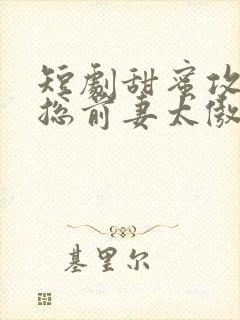 短劇甜蜜攻
总前妻太傲
基里尔